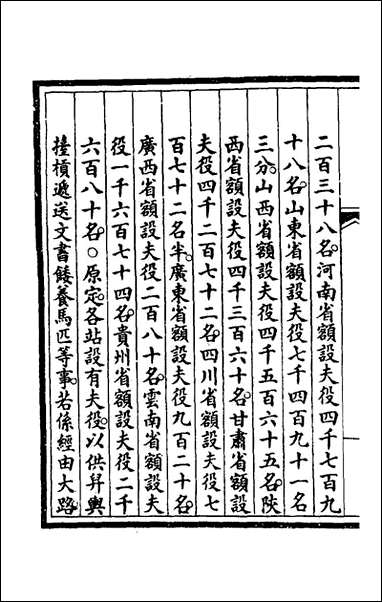 二百三十八名河南省額設夫役四千七百九
十八名山東省額設夫役七千四百九十一名
三分山西省額設夫役四千五百六十五名陜
西省額設夫役四千三百六十名甘肅省額設
夫役四千二百七十二名四川省額設夫役七
百七十二名半廣東省額設夫役九百二十名
廣西省額設夫役二百八十名雲南省額設夫
役一千六百七十四名貴州省額設夫役二千
六百八十名○原定各站設有夫役以供昇輿
擡槓遞送文書餧養馬匹等事若係經由大路